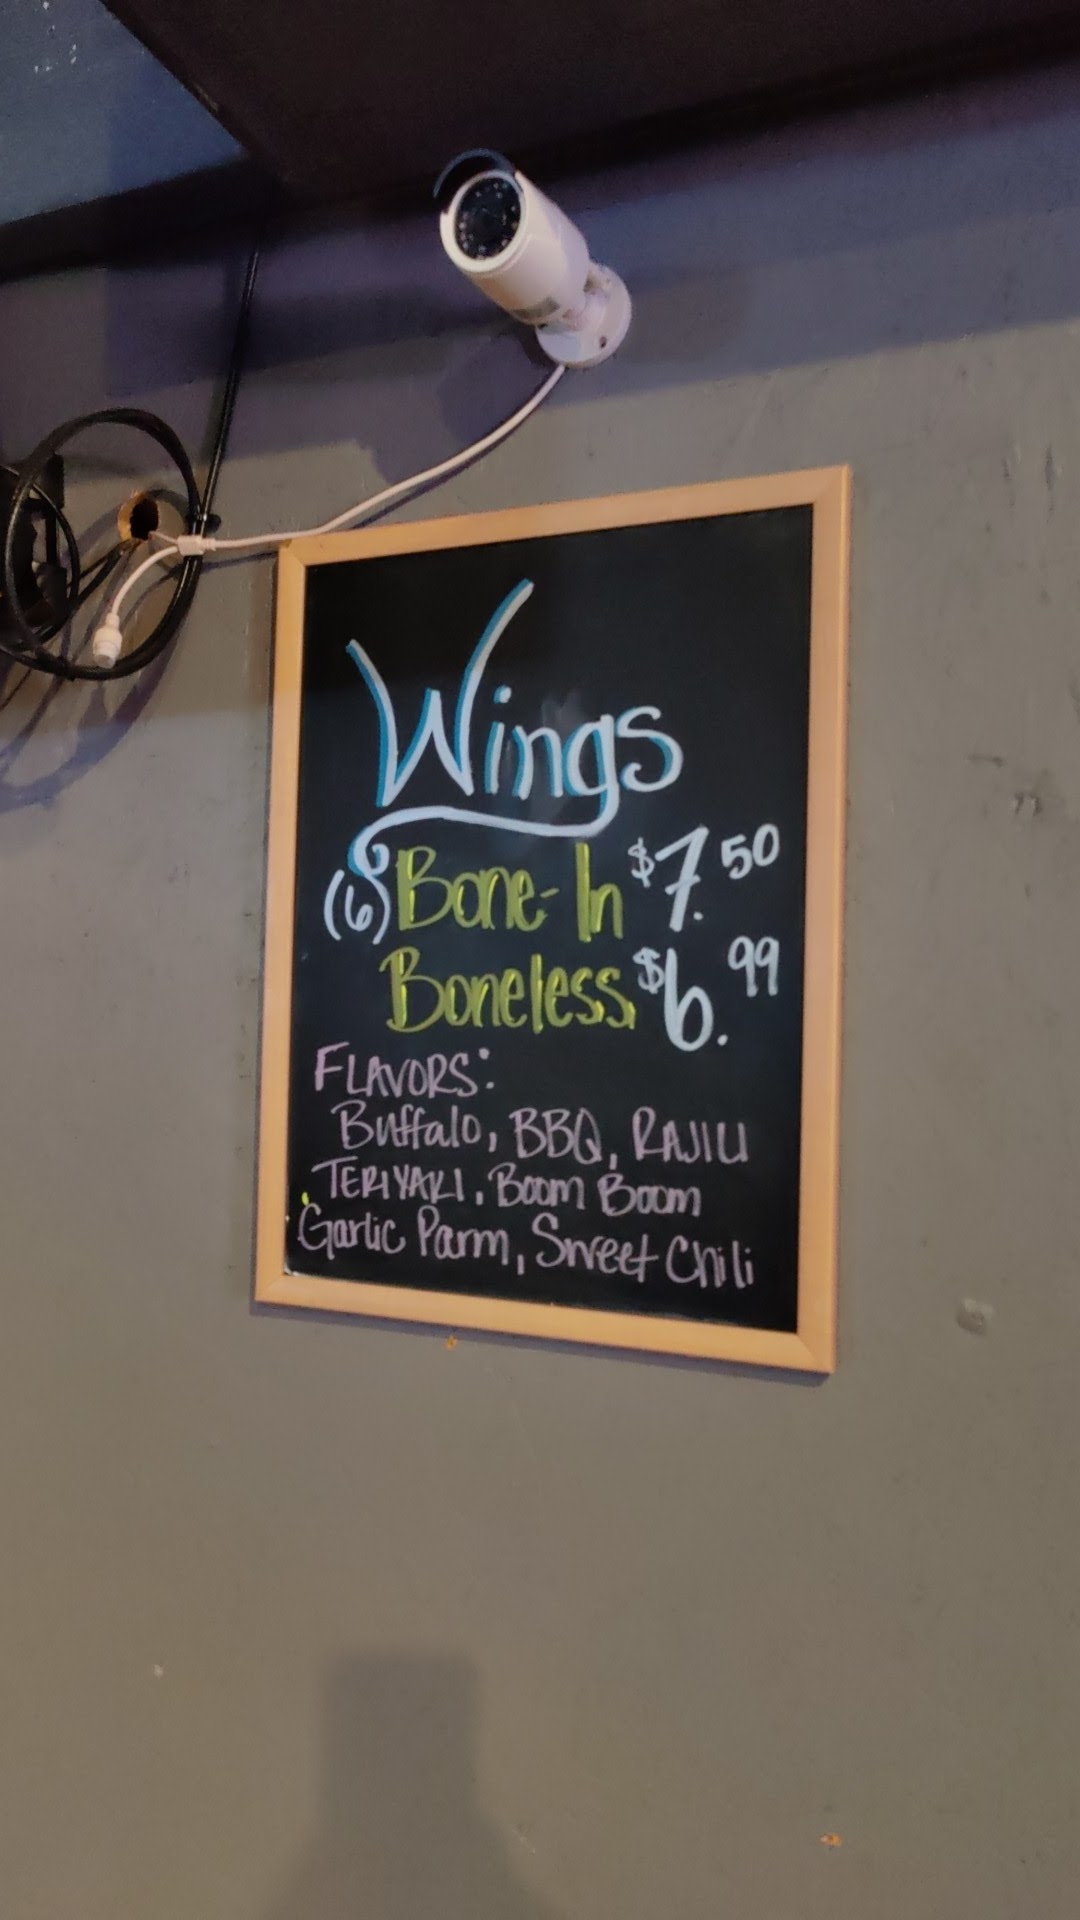 Wings
(6) Bone-In $7.50
Boneless $6.99
FLAVORS:
Buffalo, BBQ, RAJILI
TERIYAKI, Boom Boom
Garlic Parm, Sweet Chili